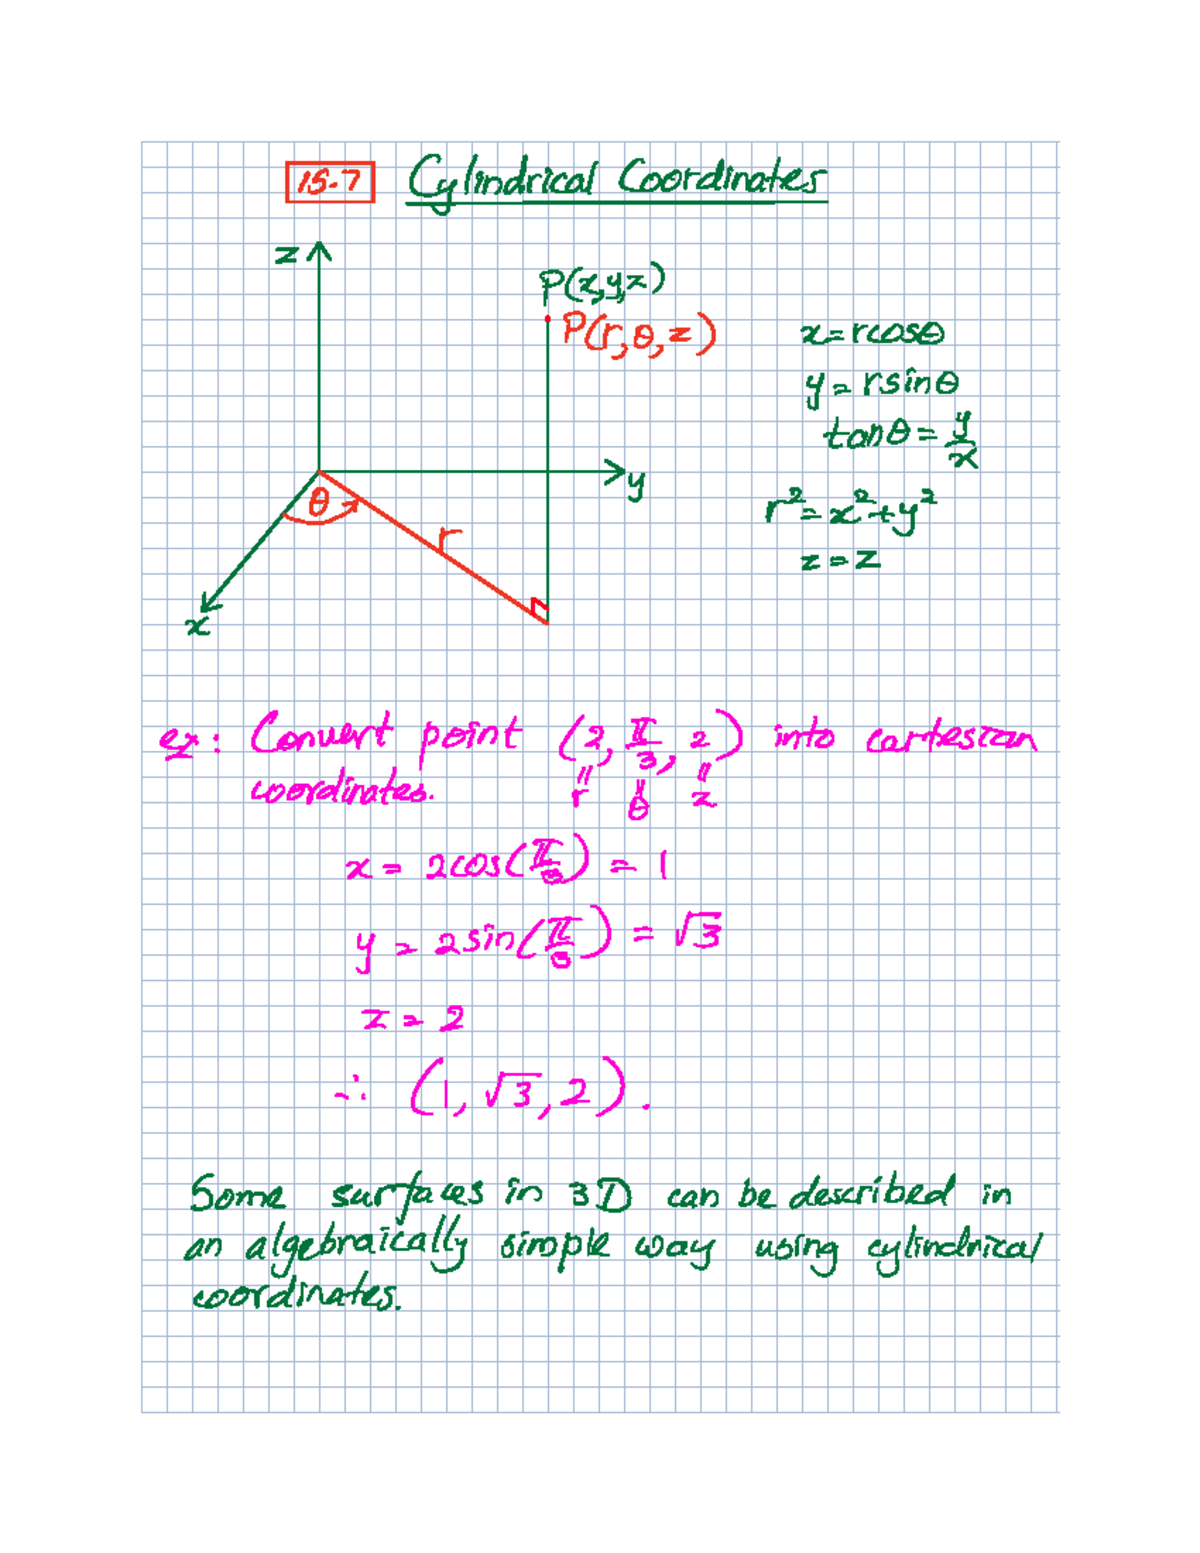 15.7 Cylindrical Coordinates
z
P(x,y,z)
P(r,θ,z)
x=rcosθ
y=rsinθ
tanθ=y/x
y
θ
r
r²=x²+y²
z=z
x
ex: Convert point (2, π/3, 2) into cartesian
coordinates. = r = θ = z
x = 2cos(π/3) = 1
y = 2sin(π/3) = √3
z = 2
∴ (1, √3, 2).
Some surfaces in 3D can be described in
an algebraically simple way using cylindrical
coordinates.